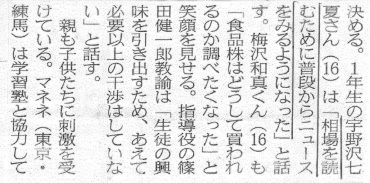 決める。1年生の宇野沢七
夏さん（16）は「相場を読
むために普段からニュース
をみるようになった」と話
す。梅沢和真くん（16）も
「食品株はどうして買われ
るのか調べたくなった」と
笑顔を見せる。指導役の篠
田健一郎教諭は「生徒の興
味を引き出すため、あえて
必要以上の干渉はしていな
い」と話す。
親も子供たちに刺激を受
けている。マネネ（東京・
練馬）は学習塾と協力して